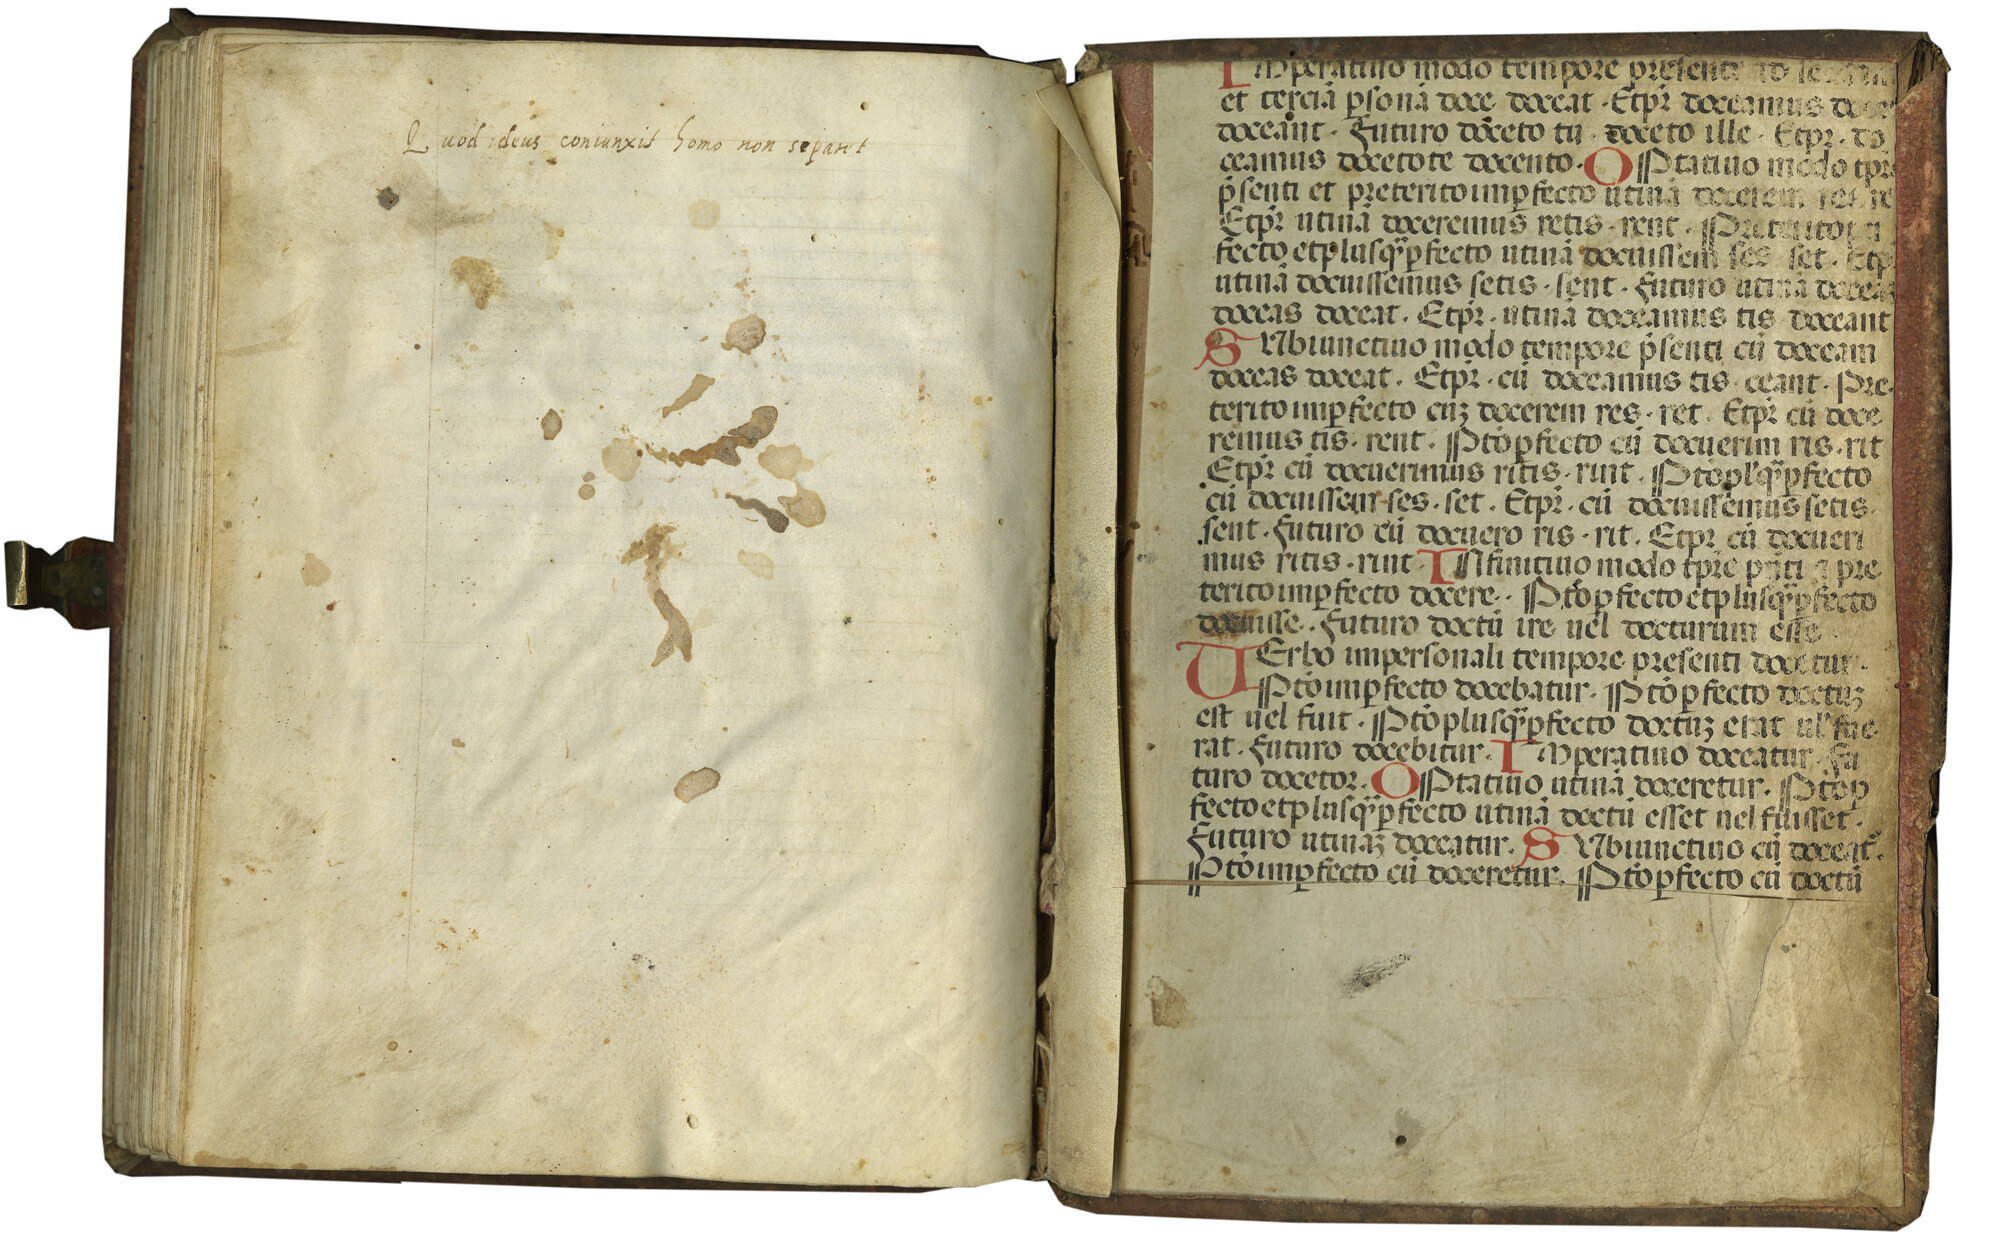 Quod deus coniunxit homo non separet
Imperatiuo modo tempore presenti ad
et terciā ꝑsonā doce doceat · Etpr̄ doceamus doce
doceant · Futuro doceto tu · doceto ille · Etpr̄ · do
ceamus docetote docento · OPtatiuo modo tpr̄e
p̄senti et preterito imꝑfecto utinā docerem res ret
Etpr̄ utinā doceremus retis · rent · Preterito ꝑ
fecto et plusqꝫꝑfecto utinā docuissem ses set · Etpr̄
utinā docuissemus setis · sent · Futuro utinā doceā
doceas doceat · Etpr̄ · utinā doceamus tis doceant
SVbiunctiuo modo tempore p̄senti cū doceam
doceas doceat · Etpr̄ · cū doceamus tis · ceant · Pre
terito imꝑfecto cuꝫ docerem res · ret · Etpr̄ cū doce
remus tis · rent · Ptōꝑfecto cū docuerim ris · rit
Etpr̄ cū docuerimus ritis · rint · Ptōpl'qꝫꝑfecto
cū docuissem · ses · set · Etpr̄ · cū docuissemus setis ·
sent · Futuro cū docuero ris · rit · Etpr̄ cū docueri
mus ritis · rint · INfinitiuo modo tpr̄e pn̄ti ⁊ pre
terito imꝑfecto docere · Ptōꝑfecto et plusqꝫꝑfecto
docuisse · Futuro doctū ire uel docturum esse
UErbo impersonali tempore presenti docetur ·
Ptōimꝑfecto docebatur · Ptōꝑfecto doctuꝫ
est uel fuit · Ptōplusqꝫꝑfecto doctuꝫ erat ul' fue
rat · Futuro docebitur · IMperatiuo doceatur · Fu
turo docetor · OPtatiuo utinā doceretur · Ptōꝑ
fecto et plusqꝫꝑfecto utinā doctū esset uel fuisset ·
Futuro utinaꝫ doceatur · SVbiunctiuo cū doceat'
Ptōimꝑfecto cū doceretur · Ptōꝑfecto cū doctū